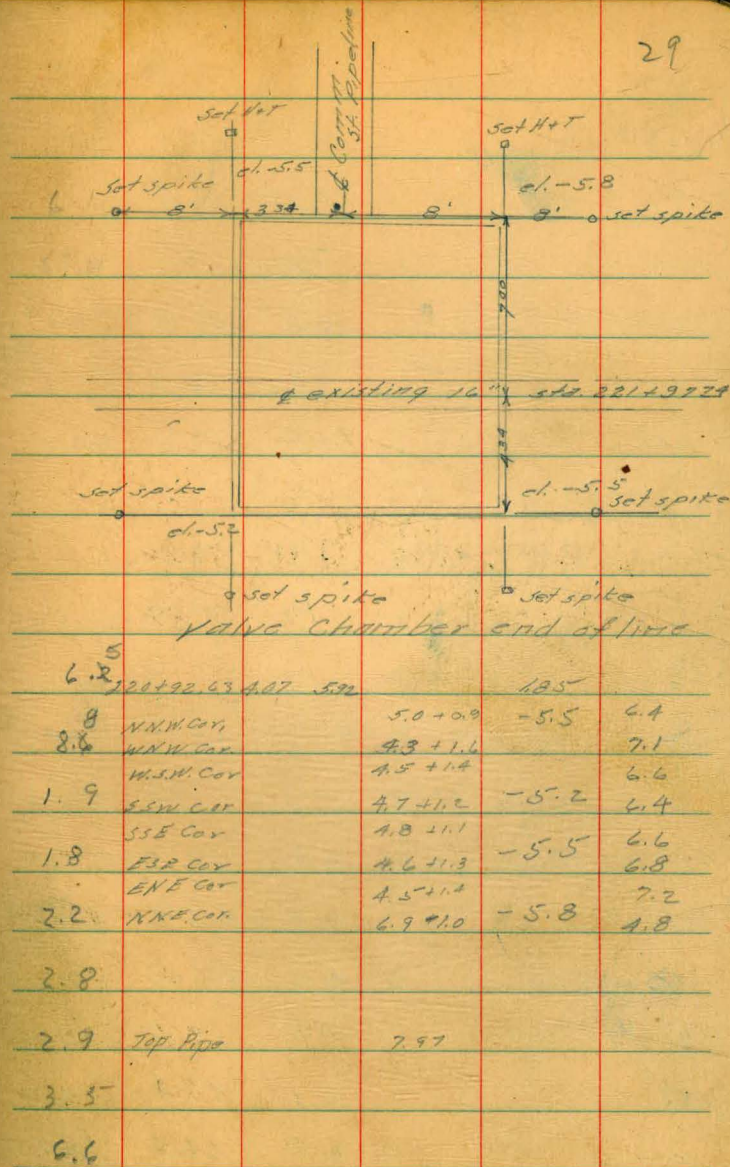 29
℄ Comm.
St. Pipeline
set H+T
set H+T
el. -5.5
el. -5.8
set spike
8'
3 34
8'
8'
set spike
7 90
℄ existing 16"
sta. 221+97 24
4 34
set spike
el. -5.2
el. -5.5
set spike
set spike
set spike
Valve Chamber end of line
220+92.63 4.07 5.92 1.85
8 N.N.W. Cor. 5.0 +0.9 -5.5 6.4
8.6 W.N.W. Cor. 4.3 +1.6 7.1
W.S.W. Cor 4.5 +1.4 6.6
1.9 S.S.W. Cor 4.7 +1.2 -5.2 6.4
SSE Cor 4.8 +1.1 6.6
1.8 ESE Cor 4.6 +1.3 -5.5 6.8
ENE Cor 4.5 +1.4 7.2
2.2 NNE. Cor. 6.9 -1.0 -5.8 4.8
2.8
2.9 Top Pipe 7.97
3.5
6.6